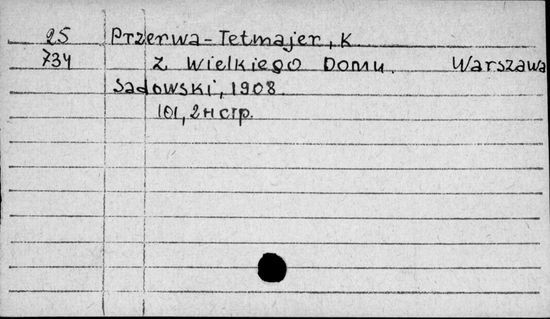 25 Przerwa-Tetmajer, K.
734 Z wielkiego Domu. Warszawa
Sadowski, 1908.
101, 2 н стр.